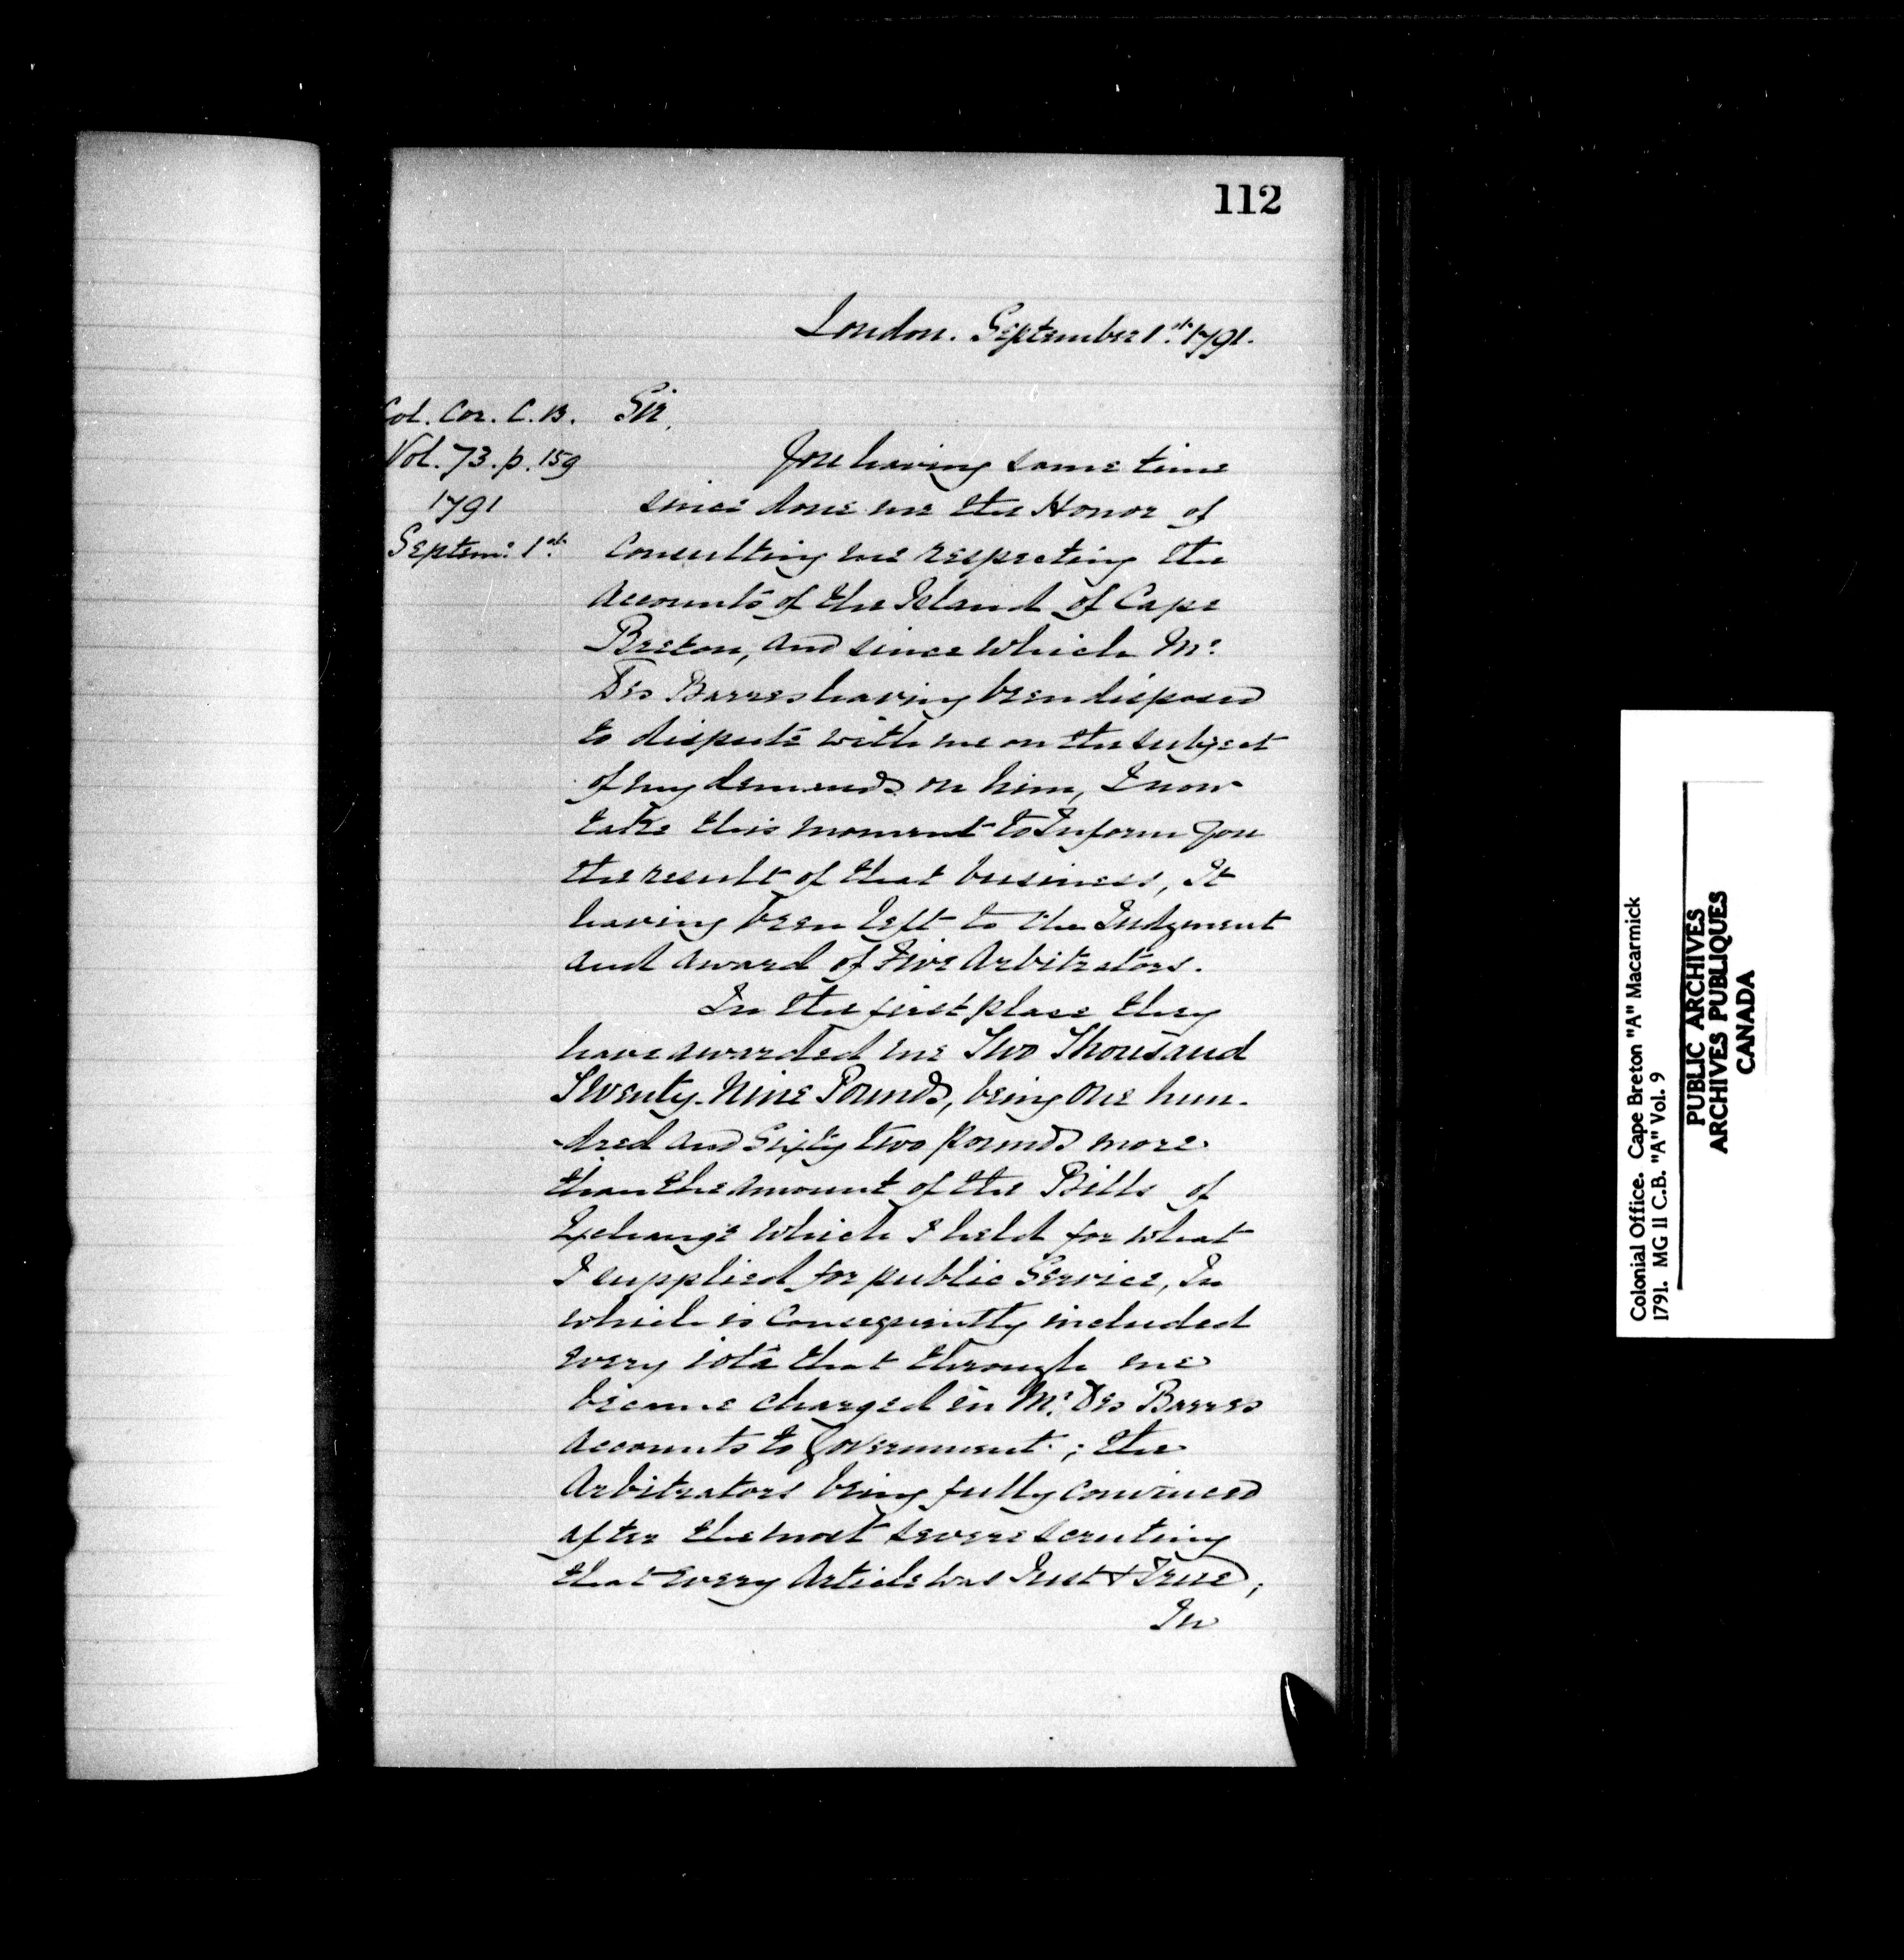 112
London. September 1st. 1791.
Col. Cor. C.B.
Vol. 73. p. 159
1791
Septem: 1st.
Sir,
You having some time
since done me the Honor of
Consulting me respecting the
Accounts of the Island of Cape
Breton, and since which Mr.
Des Barres having been disposed
to dispute with me on the subject
of my demands on him, I now
take this moment to Inform you
the result of that business, It
having been left to the Judgment
and award of Five Arbitrators.
In the first place they
have awarded me Two Thousand
Twenty-Nine Pounds, being One hun-
-dred and Sixty two pounds more
than the amount of the Bills of
Exchange which I held for what
I supplied for public Service, In
which is Consequently included
every iota that through me
became charged in Mr. Des Barres
Accounts to Government; the
Arbitrators being fully convinced
after the most severe scrutiny
that every Article was Just & True;
In
Colonial Office. Cape Breton "A" Macarmick
1791. MG 11 C.B. "A" Vol. 9
PUBLIC ARCHIVES
ARCHIVES PUBLIQUES
CANADA